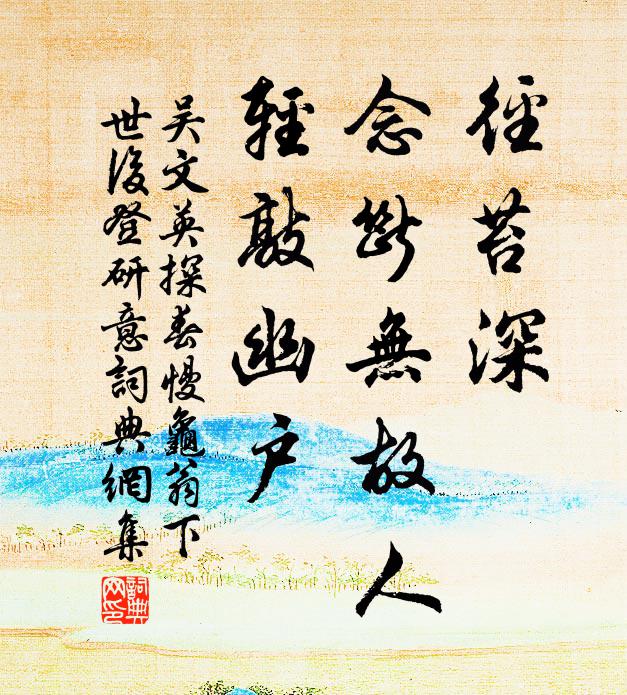 徑苔深
念斷無故人
輕敲幽户
吴文英探春慢龜翁下
世後登研意詞典網集
詞典
网印